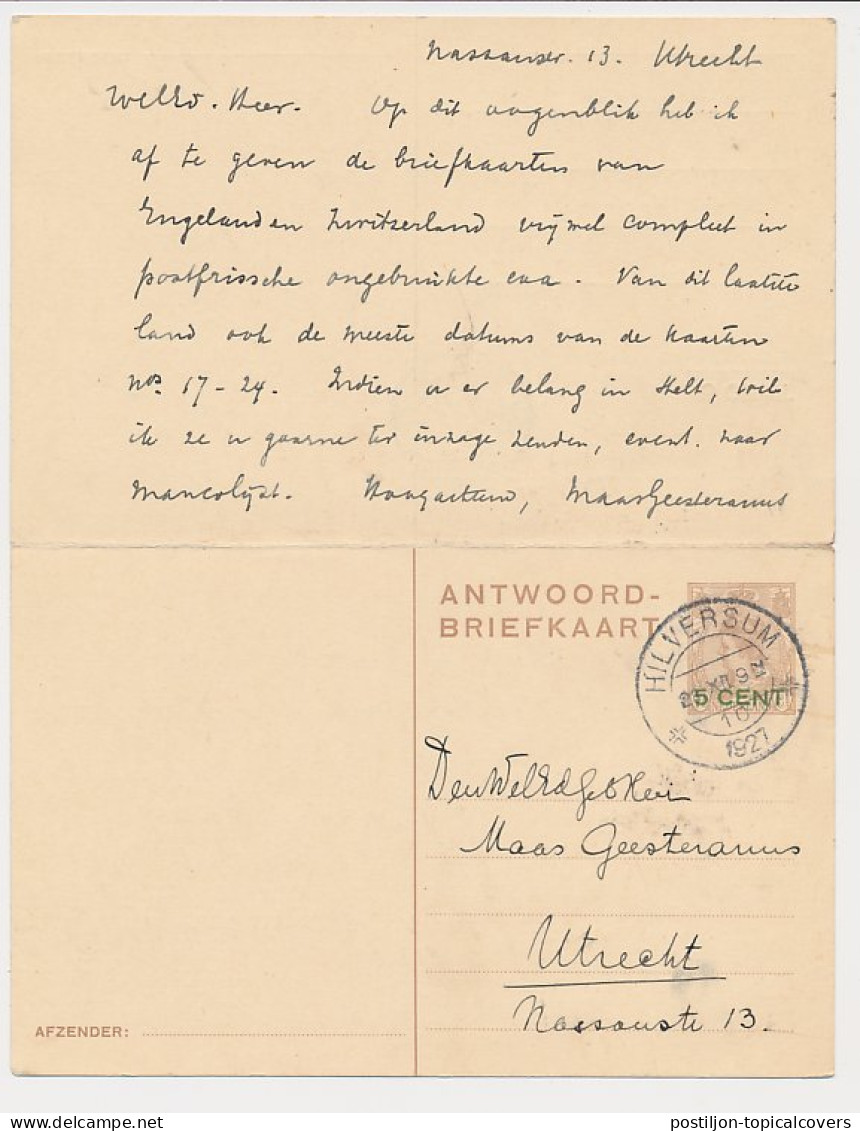 Nassaustr. 13. Utrecht
WelEd. Heer. Op dit oogenblik heb ik
af te geven de briefkaarten van
Engeland en Zwitserland vrijwel compleet in
postfrissche ongebruikte exx. Van dit laatste
land ook de meeste datums van de kaarten
nos. 17-24. Indien u er belang in stelt, wil
ik ze u gaarne ter inzage zenden, event. naar
mancolijst. Hoogachtend, MaasGeesteranus
ANTWOORD-
BRIEFKAART
HILVERSUM
XII 9
5 CENT
10
1927
DenWelEdGebHeer
Maas Geesteranus
Utrecht
Nassaustr 13.
AFZENDER:
postiljon-topicalcovers